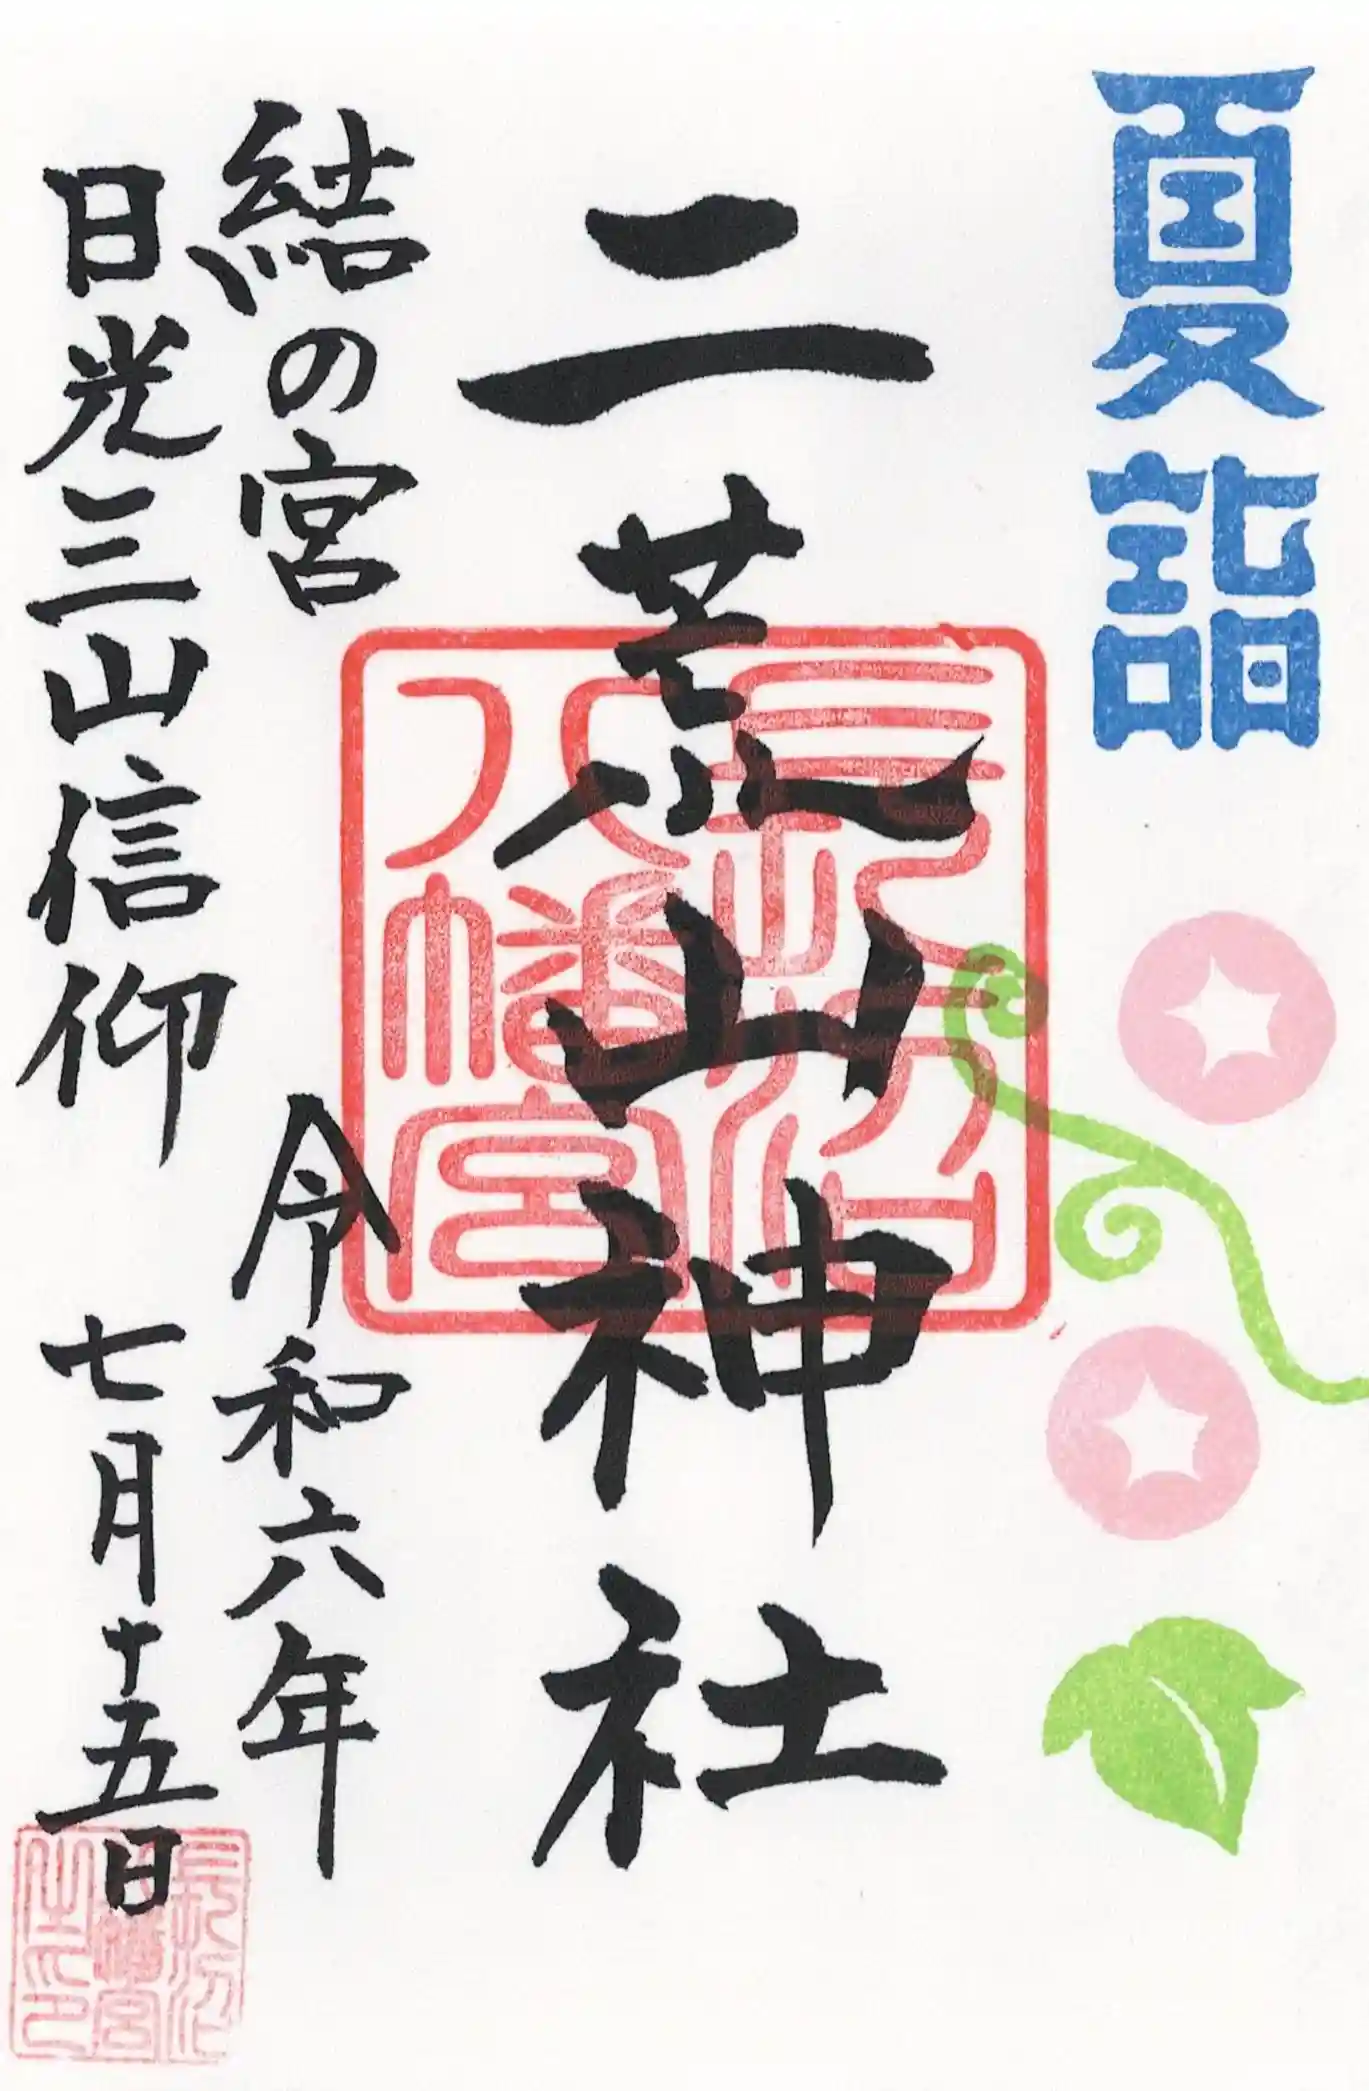 夏詣
二荒山神社
結の宮
令和六年
日光三山信仰
七月十五日
長沼八幡宮
長沼八幡宮之印